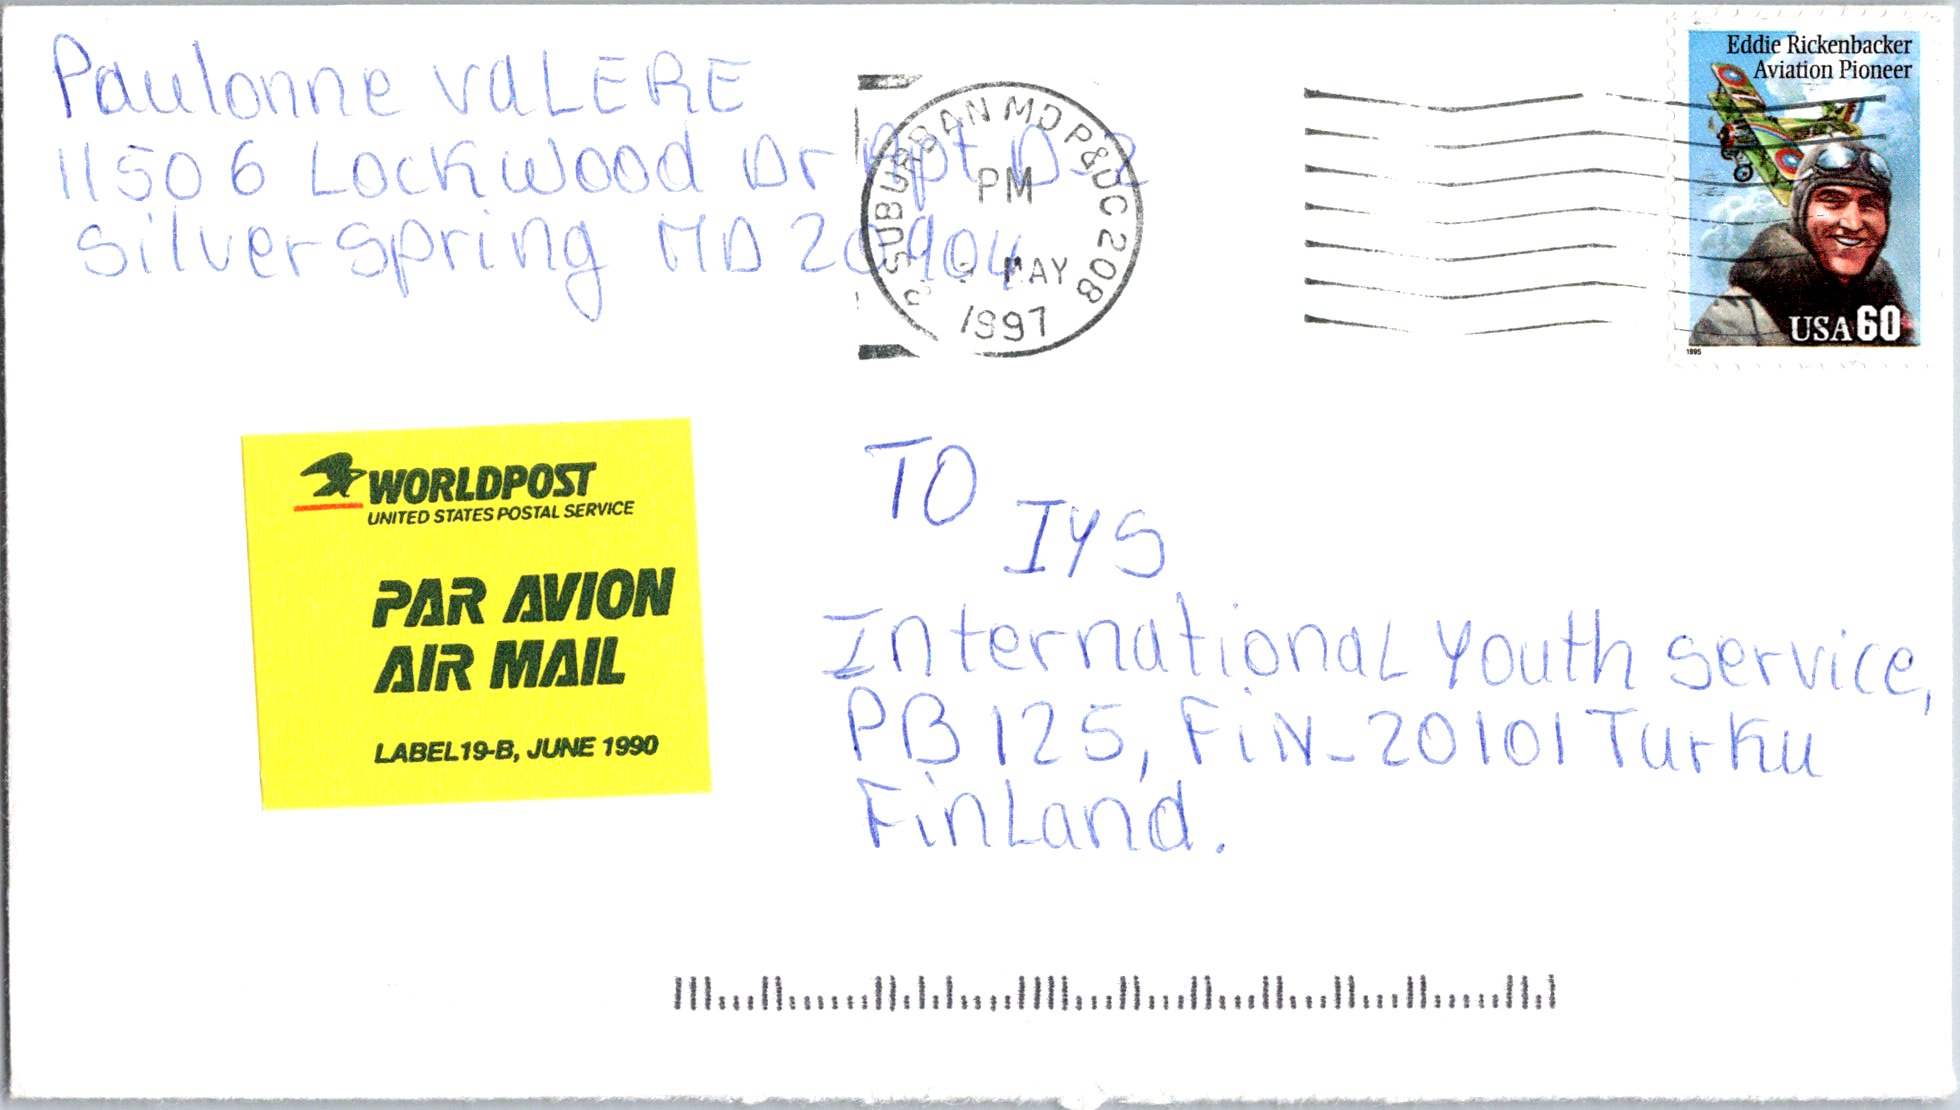 Paulonne VALERE
11506 Lockwood Dr Apt D-2
Silver spring MD 20904
SUBURBAN MD P&DC 208
PM
MAY
1997
Eddie Rickenbacker
Aviation Pioneer
USA 60
1995
WORLDPOST
UNITED STATES POSTAL SERVICE
PAR AVION
AIR MAIL
LABEL 19-B, JUNE 1990
TO
IYS
International Youth Service,
PB 125, FiN-20101 Turku
FinLand.